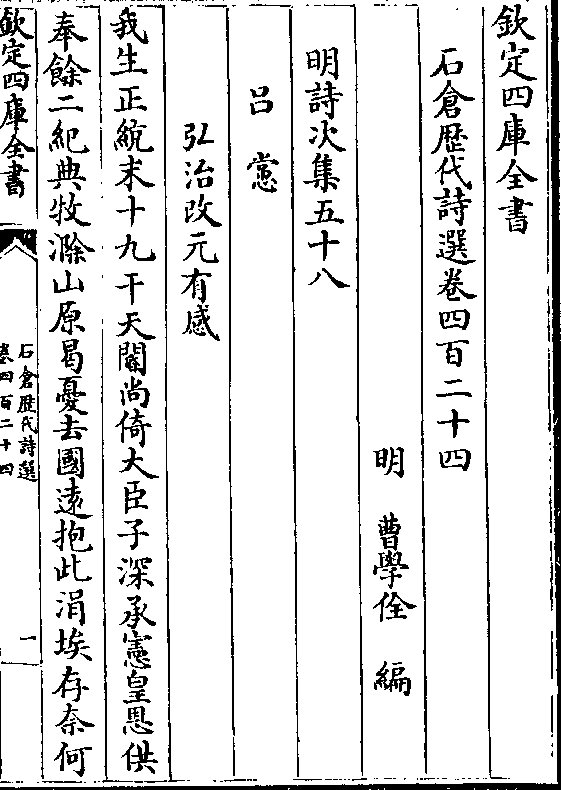 欽定四庫全書
石倉歴代詩選卷四百二十四
明 曹學佺 編
明詩次集五十八
吕㦂
弘治改元有感
我生正統末十九干天閽尚倚大臣子深承憲皇恩供
奉餘二紀典牧滁山原曷憂去國遠抱此涓埃存奈何
欽定四庫全書
石倉歴代詩選
卷四百二十四
一